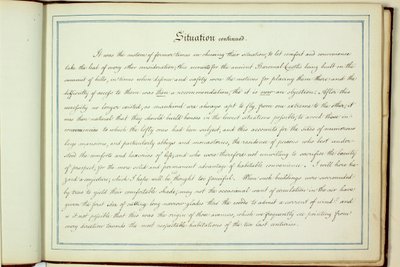 Situation continued.
It was the custom of former times in chusing their situation, to let comfort and convenience
take the lead of every other consideration; this accounts for the ancient Baronial Castle being built on the
summit of hills, in times when defence and safety were the motives for placing them there and the
difficulty of access to them was then a recommendation, tho' it is now an objection; After this
necessity no longer existed, as mankind are always apt to fly from one extreme to the other, it
was then natural that they should build houses in the lowest situations possible, to avoid those in-
conveniences to which the lofty ones had been subject, and this accounts for the sites of numerous
large mansions, and particularly abbeys and monasteries, the residence of persons who best under-
stood the comforts and luxuries of life, and who were therefore not unwilling to sacrifice the beauty
of prospect, for the more solid and permanent advantage of habitable convenience; I will here ha-
zard a conjecture, which I hope will be thought too fanciful. When such buildings were surrounded
by trees to yield their comfortable shade, may not the occasional want of circulation in the air have
given the first idea of cutting long narrow glades thro' the woods to admit a current of wind? and
is it not possible that this was the origin of those avenues, which we frequently see pointing from
every direction towards the most respectable habitations of the two last centuries.